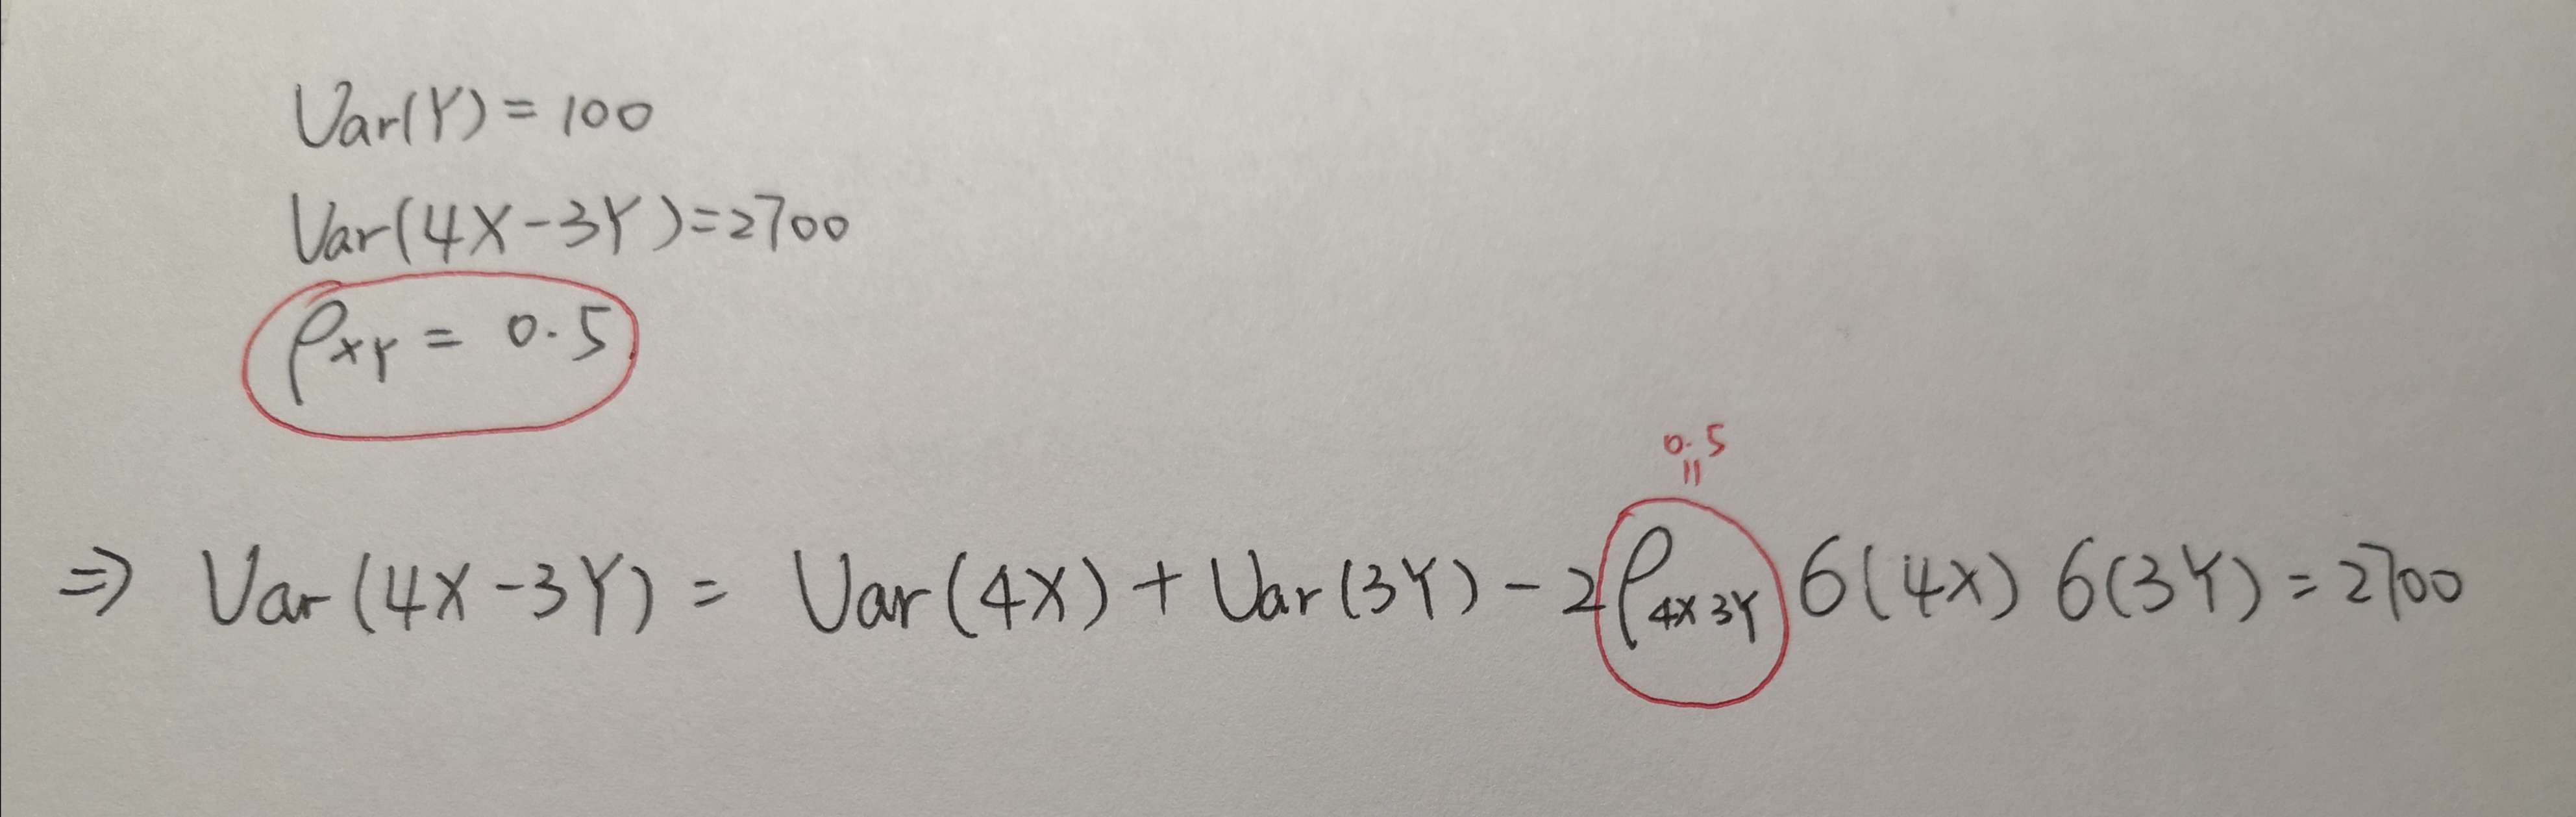 Var(Y) = 100
Var(4X-3Y)=2700
ρXY = 0.5
0.5
=
⇒ Var(4X-3Y) = Var(4X) + Var(3Y) - 2ρ4X3Y 6(4X) 6(3Y) = 2700